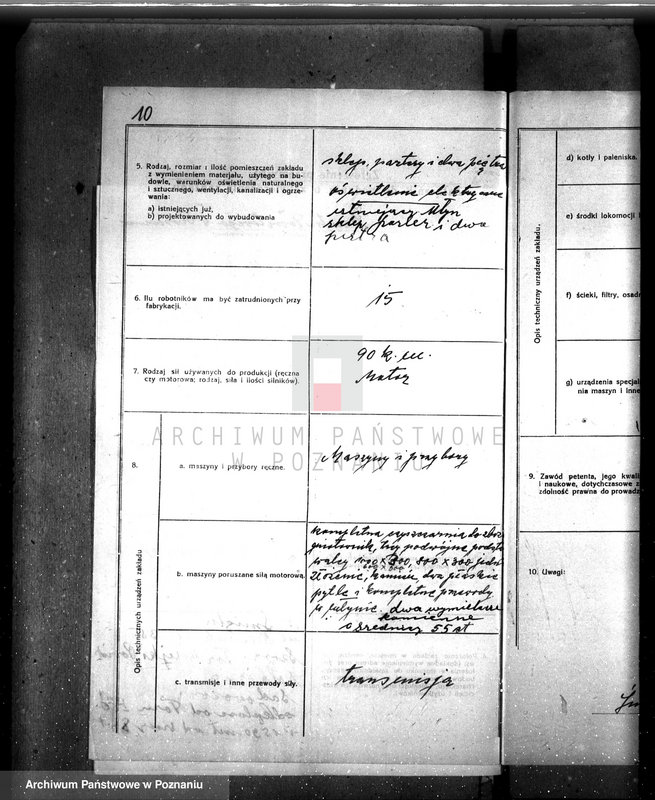 10
5. Rodzaj, rozmiar i ilość pomieszczeń zakładu
z wymienieniem materjału, użytego na bu-
dowie, warunków oświetlenia naturalnego
i sztucznego, wentylacji, kanalizacji i ogrze-
wania:
a) istniejących już,
b) projektowanych do wybudowania
sklep, partery i dwa piętra
oświetlenie elektryczne
istniejący Młyn
sklep parter i dwa
piętra
6. Ilu robotników ma być zatrudnionych przy
fabrykacji.
15
7. Rodzaj sił używanych do produkcji (ręczna
czy motorowa; rodzaj, siła i ilości silników).
90 k. m.
Motor
8.
Opis technicznych urządzeń zakładu
a. maszyny i przybory ręczne.
Maszyny i przybory
b. maszyny poruszane siłą motorową.
kompletna
podwójne
800 x 300
kamień, dwa płaskie
pytle i kompletne przewody
dwa
kamienne
o średnicy 55
c. transmisje i inne przewody siły.
transmisja
Opis techniczny urządzeń zakładu.
d) kotły i paleniska.
e) środki lokomocji
f) ścieki, filtry, osad
g) urządzenia specjal
nia maszyn i inne
9. Zawód petenta, jego kwali
i naukowe, dotychczasowe z
zdolność prawna do prowadz
10. Uwagi:
ARCHIWUM PAŃSTWOWE
W POZNANIU
Archiwum Państwowe w Poznaniu